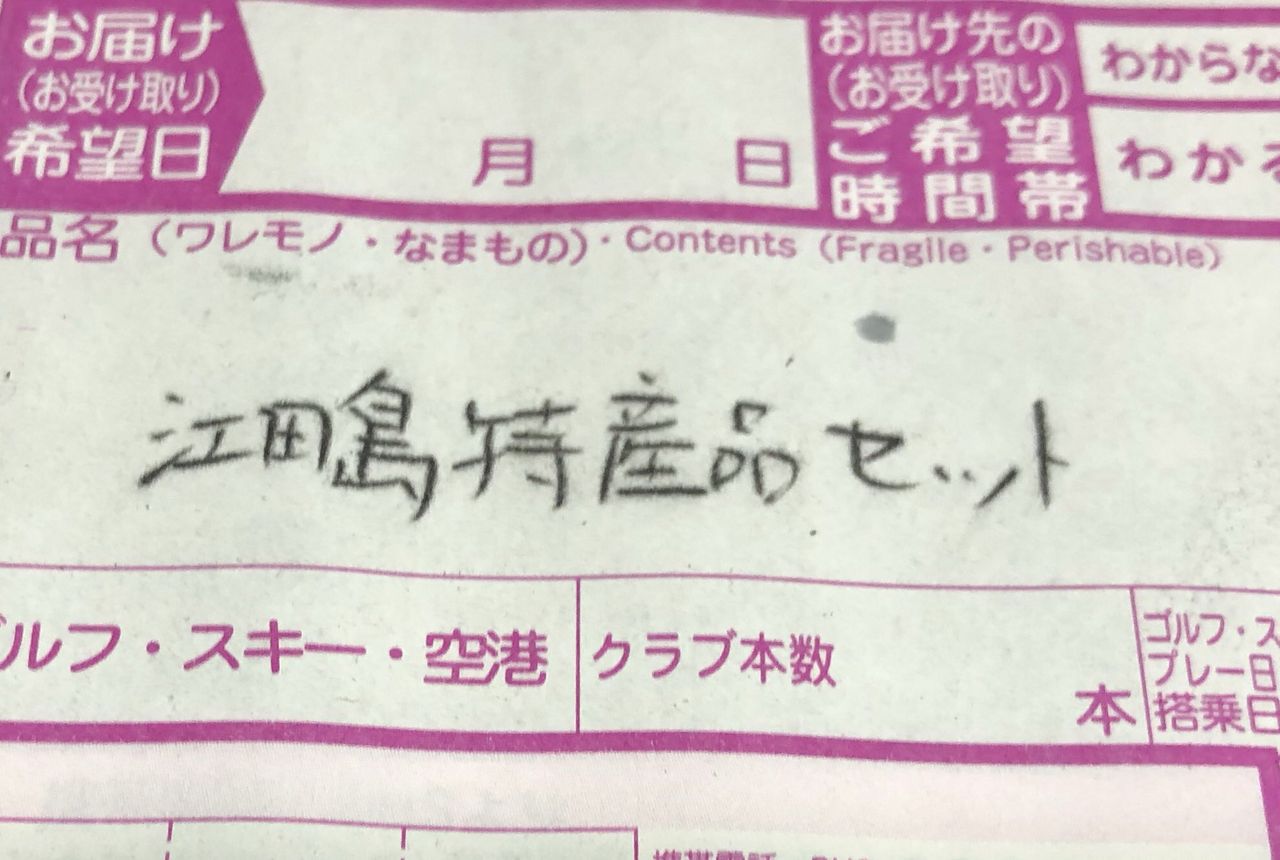 お届け
(お受け取り)
希望日
月 日
お届け先の
(お受け取り)
ご希望
時間帯
わからな
わかる
品名(ワレモノ・なまもの)・Contents (Fragile・Perishable)
江田島特産品セット
ルフ・スキー・空港
クラブ本数
本
ゴルフ・ス
プレー日
搭乗日